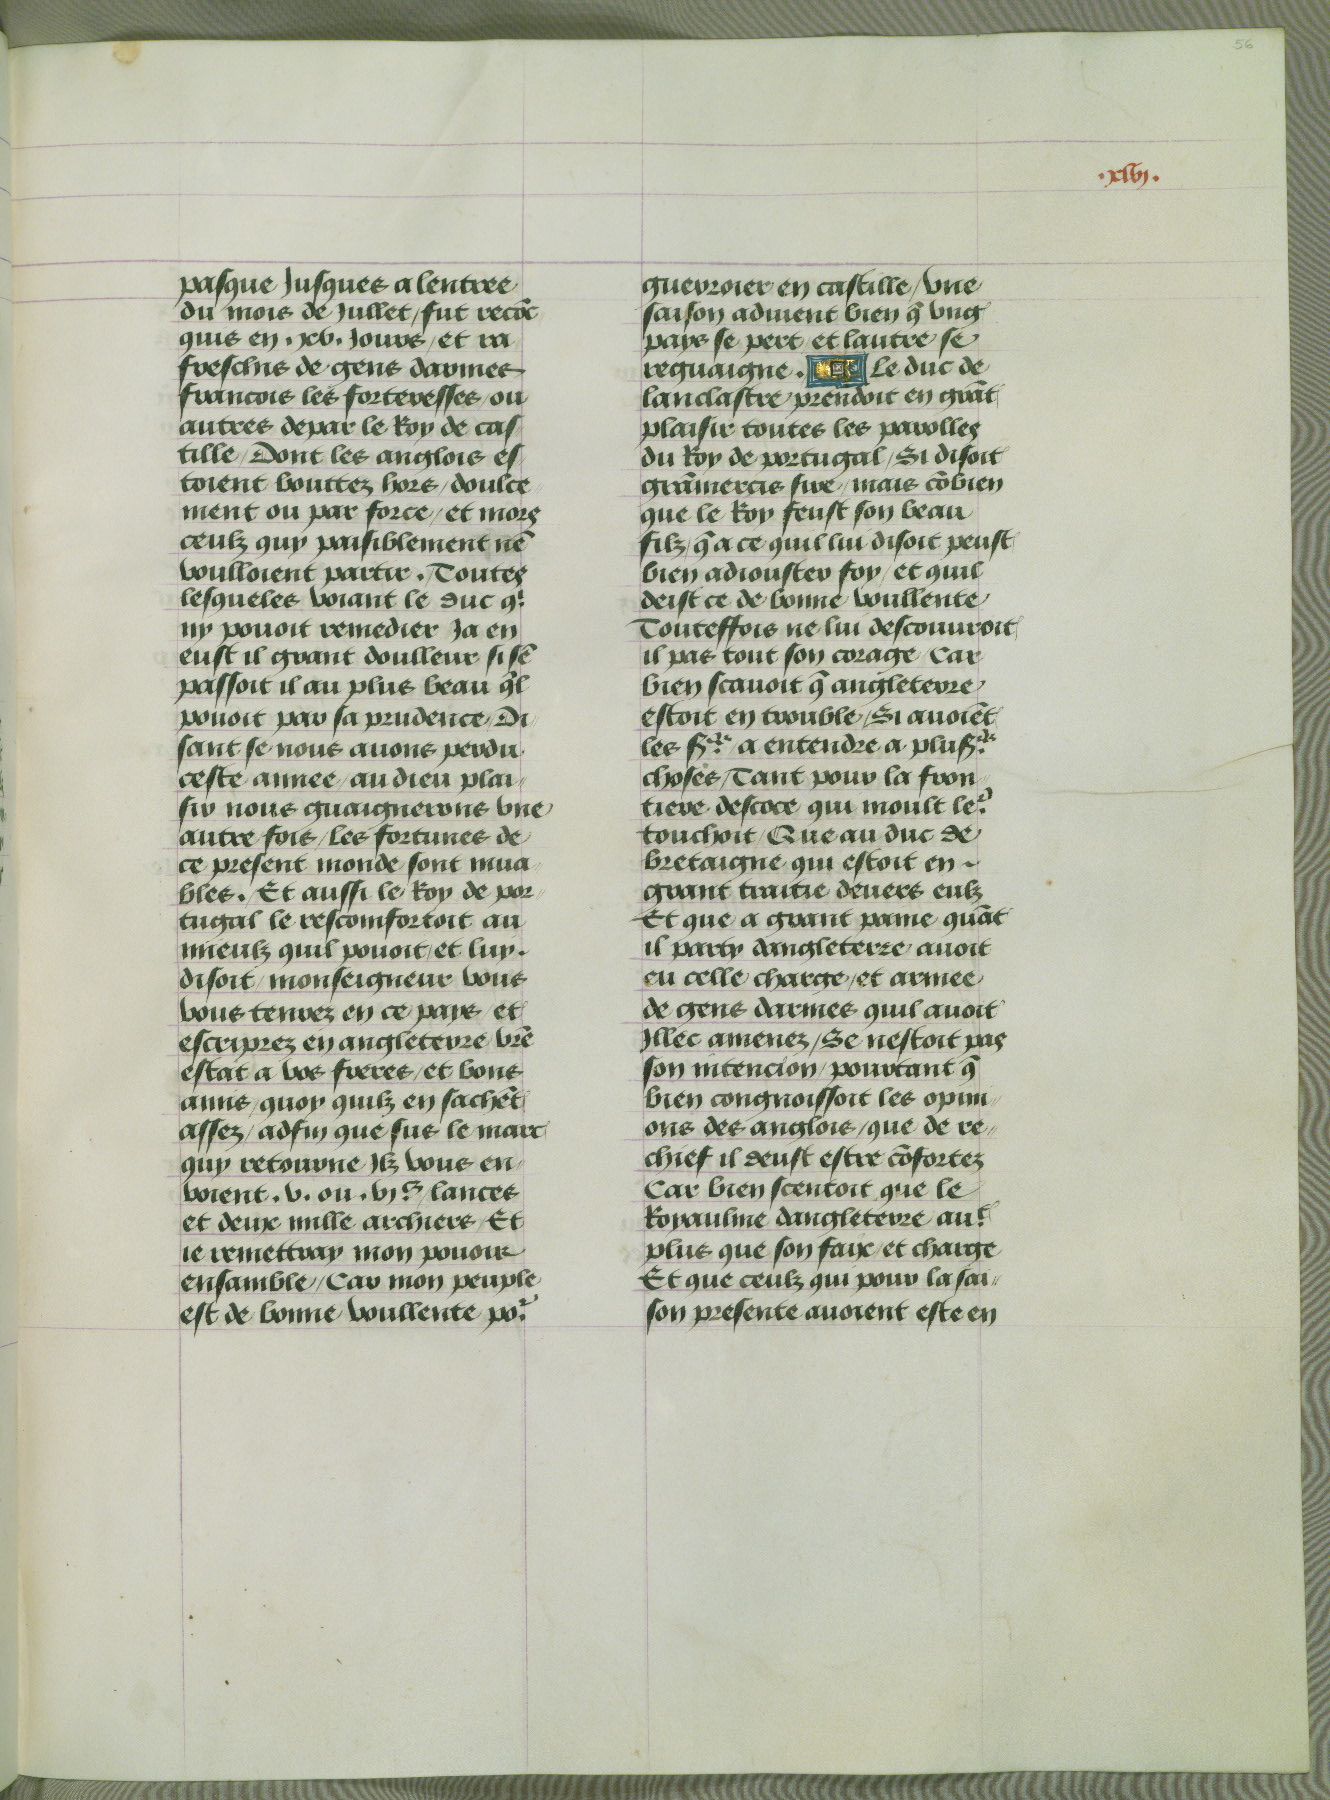 56
.xlvj.
pasque Jusques a lentree
du mois de Jullet / fut recōc
quis en .xv. Jours / et ra
freschis de gens darmes
francois les forteresses / ou
autres de par le Roy de cas
tille / Dont les anglois es
toient bouttez hors / doulce
ment ou par force / et mors
ceulz quy paisiblement nē
voulloient partir . Toutes
lesqueles voiant le duc qͥ
ny pouoit remedier Ja en
eust il grant doulleur si sē
passoit il au plus beau ql̄
pouoit par sa prudence / Di
sant se nous auons perdu
ceste annee / au dieu plai
sir nous guaignerons vne
autre fois / les fortunes de
ce present monde sont mua
bles . Et aussi le Roy de por
tugal le rescomfortoit au
mieulz quil pouoit / et luy .
disoit / monseigneur vous
vous tenrez en ce pays / et
escriprez en angleterre vrē
estat a vos freres / et bons
amis / quoy quilz en sachēt
assez / adfin que sus le marc
quy retourne Jlz vous en
voient . v . ou . vjᶜ lances
et deux mille archiers / Et
ie remettray mon pouoir
ensamble / Car mon peuple
est de bonne voullente poʳ
guerroier en castille / Vne
saison aduient bien q̄ vng
pays se pert / et lautre se
reguaigne . Le duc de
lanclastre prendoit en grāt
plaisir toutes les parolles
du Roy de portugal / Si disoit
grāmercis sire / mais cōbien
que le Roy feust son beau
filz / q̄ a ce quil lui disoit peust
bien adiouster foy / et quil
deist ce de bonne voullente
Touteffois ne lui descouuroit
il pas tout son corage Car
bien scauoit q̄ angleterre
estoit en trouble / Si auoiēt
les sʳˢ a entendre a plusʳˢ
choses / Tant pour la fron
tiere descoce qui moult leʳ
touchoit / Que au duc de
bretaigne qui estoit en
grant traitie deuers eulz
Et que a grant paine quāt
il party dangleterre auoit
eu celle charge / et armee
de gens darmes quil auoit
Jllec amenez / Se nestoit pas
son intencion / pourtant q̄
bien congnoissoit les opini
ons des anglois / que de re
chief il deust estre cōfortez
Car bien scentoit que le
Royaulme dangleterre auͭ
plus que son faix / et charge
Et que ceulz qui pour la sai
son presente auoient este en